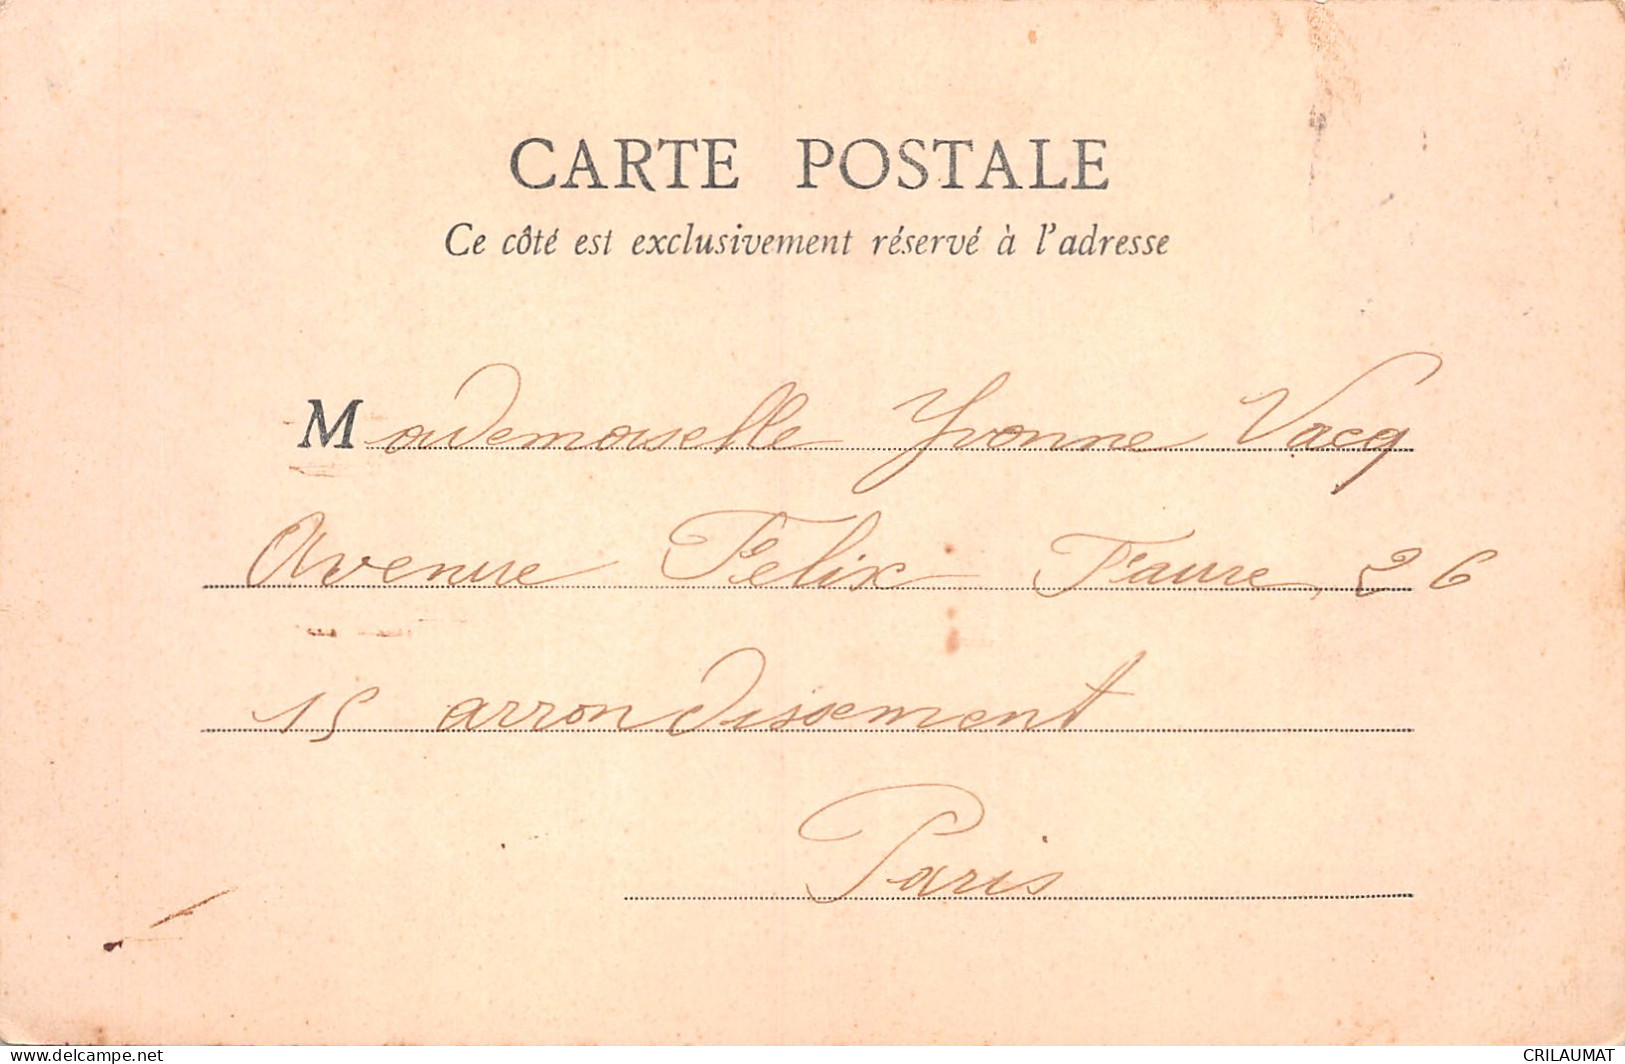 CARTE POSTALE
Ce côté est exclusivement réservé à l'adresse
Mademoiselle Yvonne Vacq
Avenue Felix Faure, 26
15 arrondissement
Paris
delcampe.net
CRILAUMAT